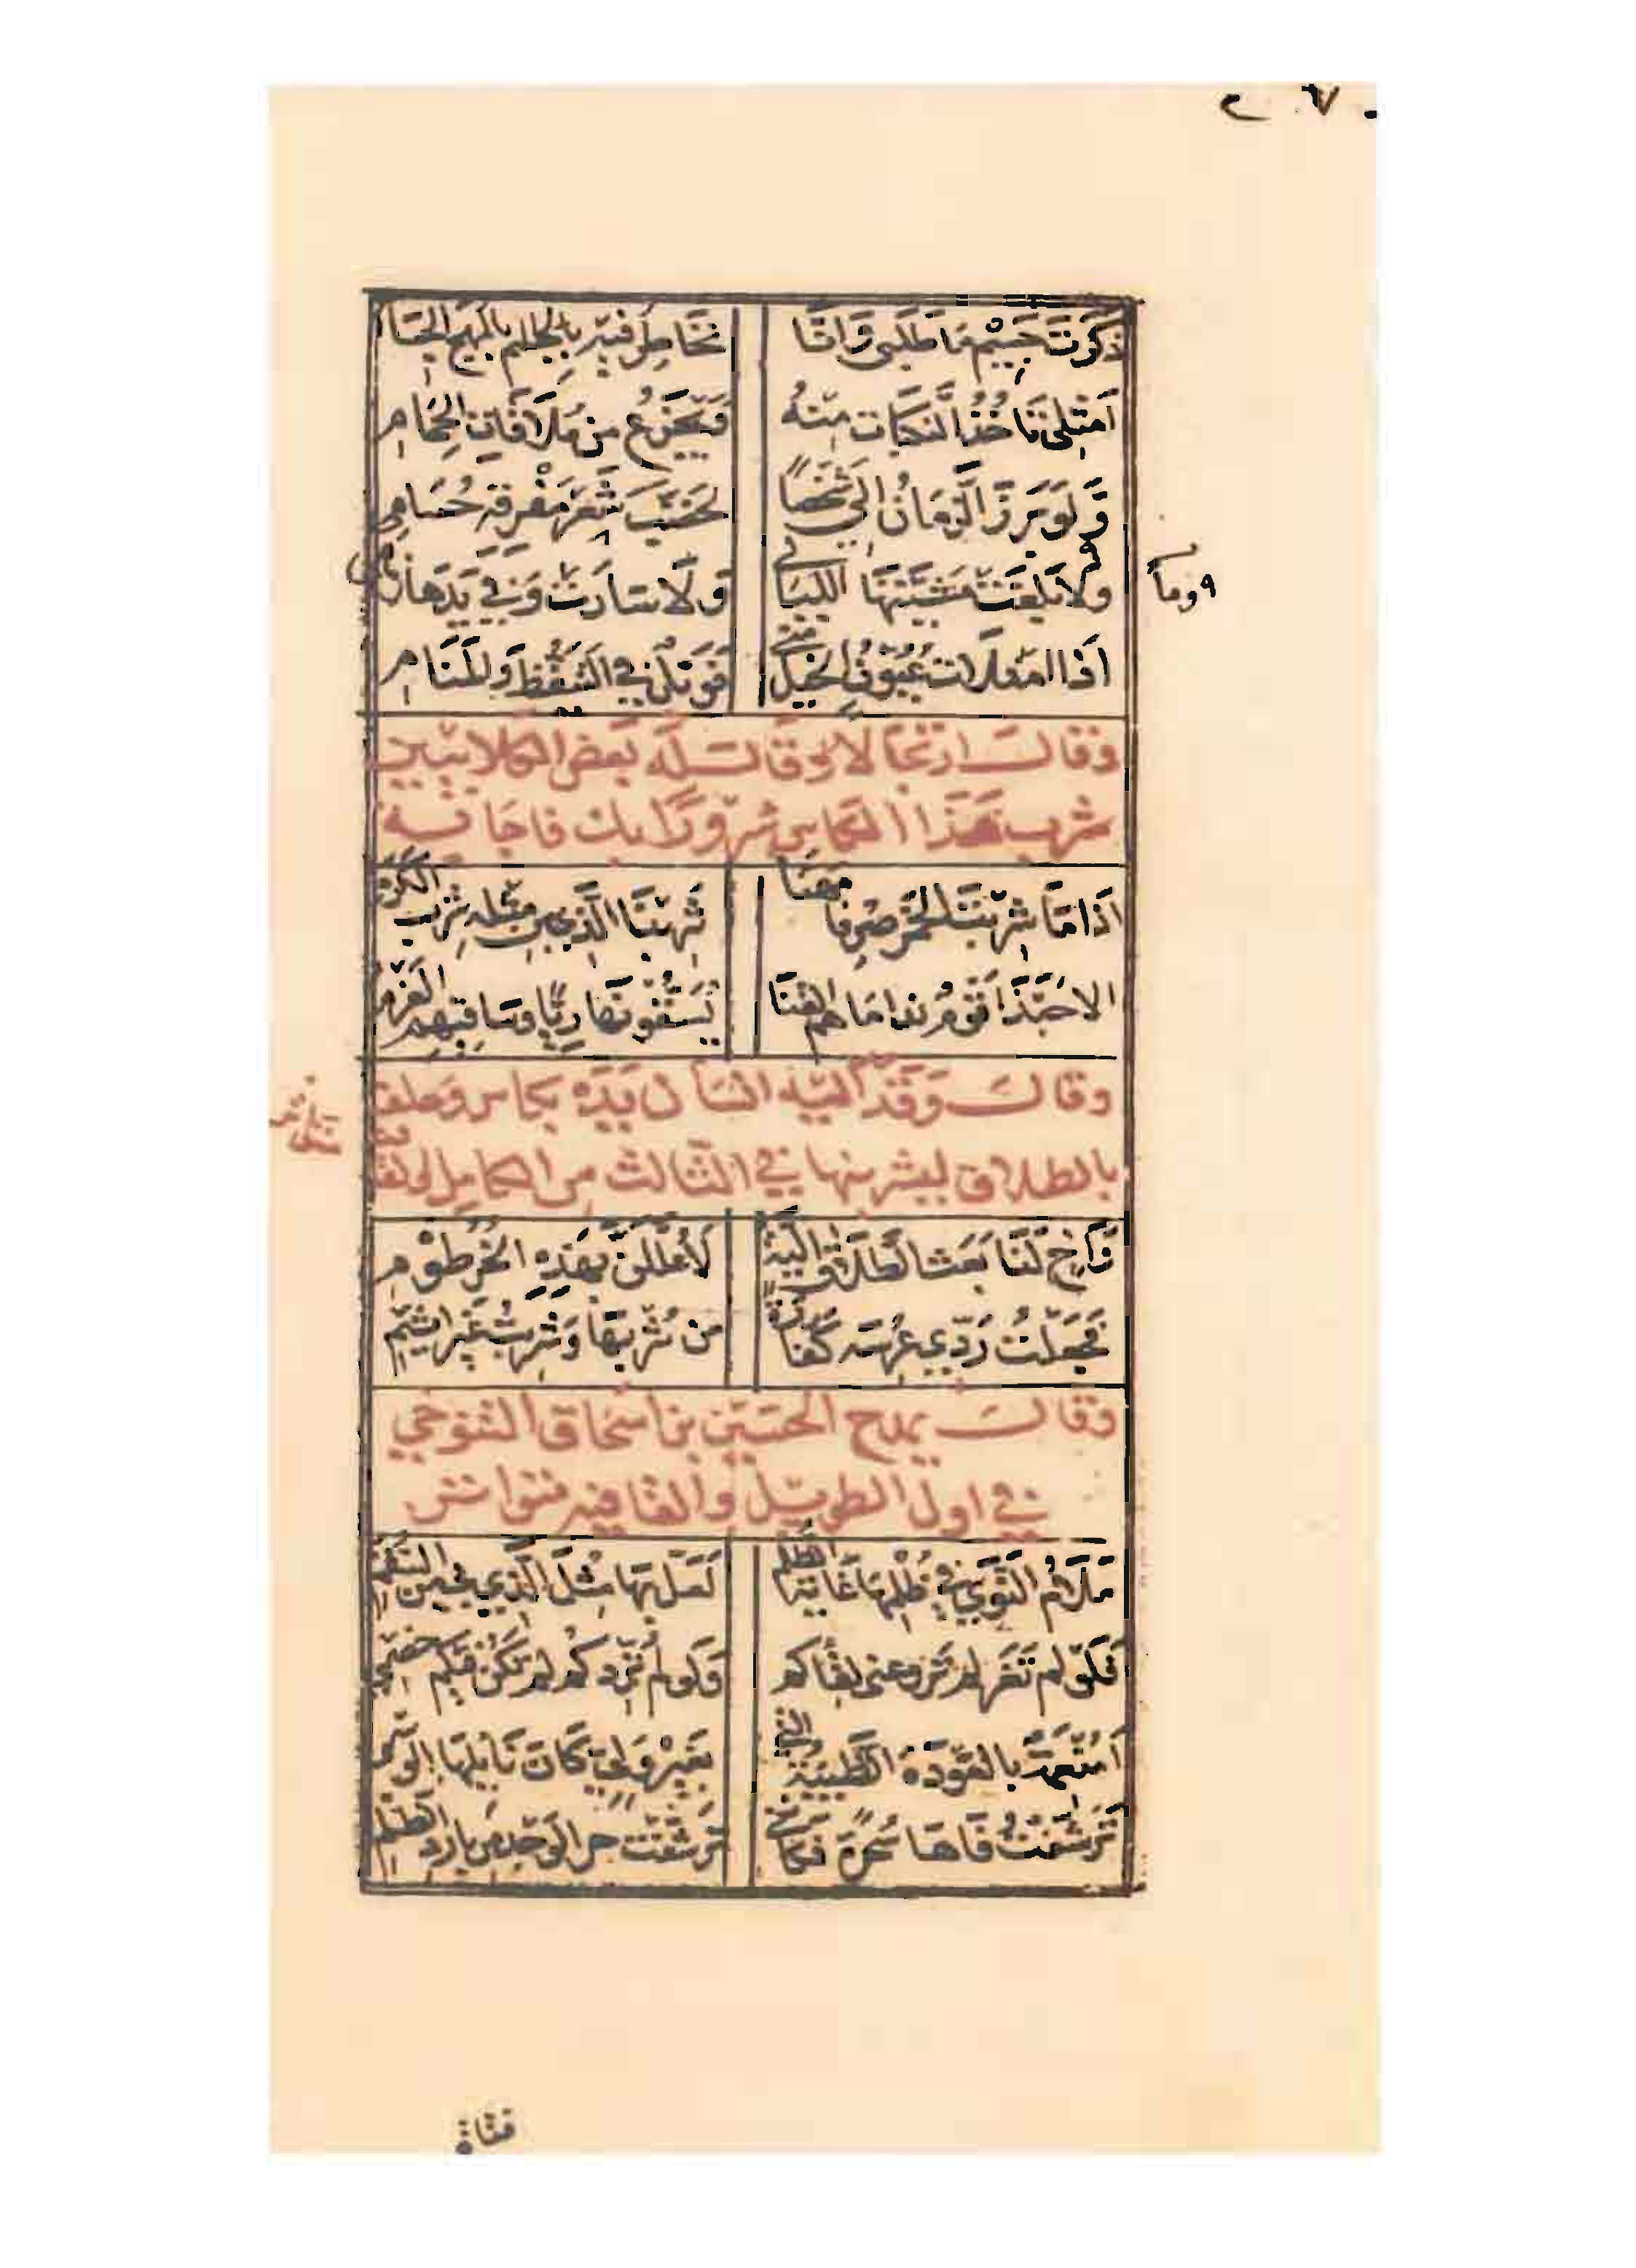 ذَكَرْتَ جَسِيمَ مَا طَلَبِي وَاِنَّا نُخَاطِرُ فِيهِ بِالْمُهَجِ الْجِسَامِ
اَمِثْلِي تَأْخُذُ النَّكَبَاتُ مِنْهُ وَيَجْزَعُ مِنْ مُلَاقَاتِ الْحِمَامِ
وَلَوْ بَرَزَ الزَّمَانُ اِلَيَّ شَخْصًا لَخَضَّبَ شَعْرَ مَفْرِقِهِ حُسَامِي
وَلَا بَلَغَتْ مَشِيَّتَهَا اللَّيَالِي وَلَا سَارَتْ وَفِي يَدِهَا زِمَامِي
وما
اِذَا امْتَلَأَتْ عُيُونُ الْخَيْلِ مِنِّي فَوَيْلٌ فِي التَّيَقُّظِ وَالْمَنَامِ
وَقَالَ ارْتِجَالًا وَقَالَ لَهُ بَعْضُ الْكِلَابِيِّينَ
شرب هَذَا الكاس سرورًا بك فاجابه
اِذَا مَا شَرِبْتَ الْخَمْرَ صِرْفًا مُهَنَّأً شَرِبْنَا الَّذِي مِنْ مِثْلِهِ شَرِبَ الْكَرْمُ
الا حَبَّذَا قَوْمٌ نداماهم القنا يُسَقُّونَهَا رِيًّا وَسَاقِيهِمُ الْعَزْمُ
وقال وَقَدْ اليه انسان يَدَهُ بكاس وحلف
بالطلاق ليشربنها في الثالث من الكامل
وَاَخٍ لَنَا بَعَثَ الطَّلَاقَ اَلِيَّةً لَاُعَلِّلَنَّ بِهَذِهِ الْخُرْطُومِ
فَجَعَلْتُ رَدِّي عِرْسَهُ كَفَّارَةً مِنْ شُرْبِهَا وَشَرِبْتُ غَيْرَ اَثِيمِ
وقال يمدح الحسين بن اسحاق التنوخي
في اول الطويل والقافيه متواتر
مَلَامُ النَّوَى فِي ظُلْمِهَا غَايَةُ الظُّلْمِ لَعَلَّ بِهَا مِثْلَ الَّذِي بِي مِنَ السُّقْمِ
فَلَوْ لم تَغَرْ لم تَزْوِ عني لقاكم وَلَوْ لم تُرِدْكم لم تَكُنْ فِيكُمُ خَصْمِي
اَمُنْعِمَةٌ بِالْعَوْدَةِ الظَّبْيَةُ الَّتِي بِغَيْرِ وَلِيٍّ كَانَ نَايِلُهَا الْوَسْمِي
تَرَشَّفْتُ فَاهَا سُحْرَةً فَكَاَنَّنِي تَرَشَّفْتُ حر الْوَجْدِ من بَارِدِ الظَّلْمِ
فتاة